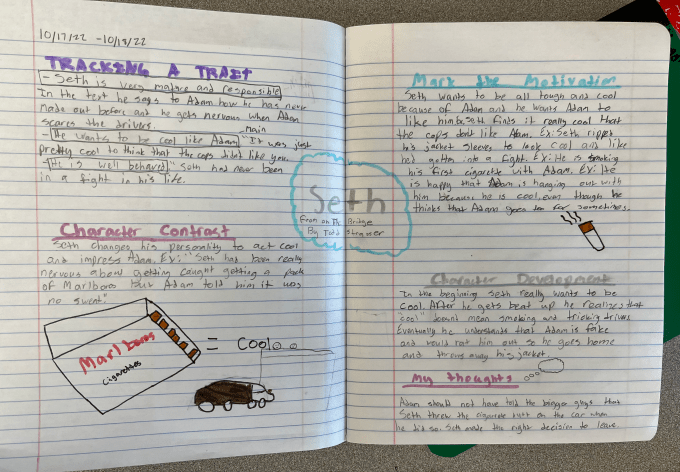 10/17/22 - 10/18/22
TRACKING A TRAIT
- Seth is very mature and responsible
In the text he says to Adam how he has never
made out before and he gets nervous when Adam
scares the drivers.
- He wants to be cool like Adam "It was just
Main
pretty cool to think that the cops didnt like you.
- He is well behaved "Seth had never been
in a fight in his life.
Seth
From on The Bridge
By Todd Strasser
Character Contrast
Seth changes his personality to act cool
and impress Adam. EX: "Seth has been really
nervous about getting caught getting a pack
of Marlboros but Adam told him it was
no sweat"
Marlboros
cigarettes
= Cool
Mark the Motivation
Seth wants to be all tough and cool
because of Adam and he wants Adam to
like him. Seth finds it really cool that
the cops dont like Adam. Ex: Seth ripped
his jacket sleeves to look cool and like
hed gotten into a fight. EX: He is smoking
his first cigarette with Adam. EX: He
is happy that Adam is hanging out with
him because he is cool, even though he
thinks that Adam goes too far sometimes.
Character Development
In the beginning Seth really wants to be
cool. After he gets beat up he realizes that
"cool" doesnt mean smoking and tricking drivers.
Eventually he understands that Adam is fake
and would rat him out so he goes home
and throws away his jacket.
My thoughts
Adam should not have told the bigger guys that
Seth threw the cigarette butt on the car when
he did so. Seth made the right decision to leave.